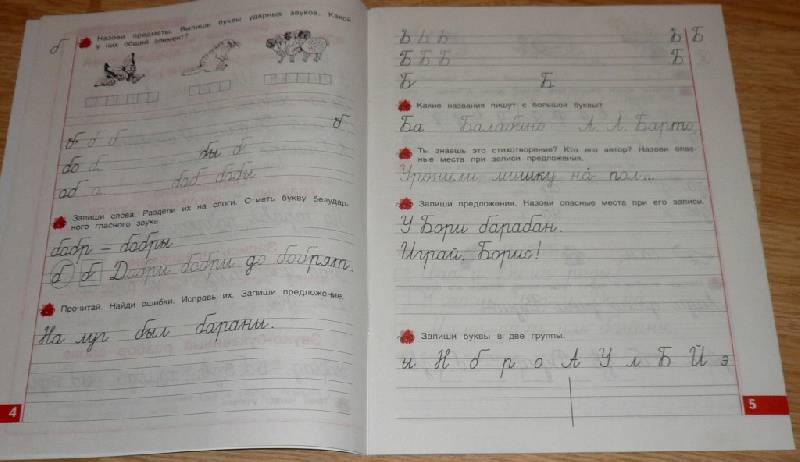 б
Назови предметы. Впиши буквы ударных звуков. Какой
у них общий элемент?
б б б б
бо б бы б
об о
Запиши слова. Раздели их на слоги. Отметь букву безудар-
ного гласного звука.
бобр – бобры
б б бобры до
Прочитай. Найди ошибки. Исправь их. Запиши предложение.
На луг был барани.
4
Б Б Б Б Б
Б Б Б Б
Б Б
Какие названия пишут с большой буквы?
Ба Балабино А. Л. Барто
Ты знаешь это стихотворение? Кто его автор? Назови опас-
ные места при записи предложения.
Уронили мишку на пол..
Запиши предложения. Назови опасные места при его записи.
У Бори барабан.
Играй, Борис!
Запиши буквы в две группы.
и Н б р о А У л Б Й з
5